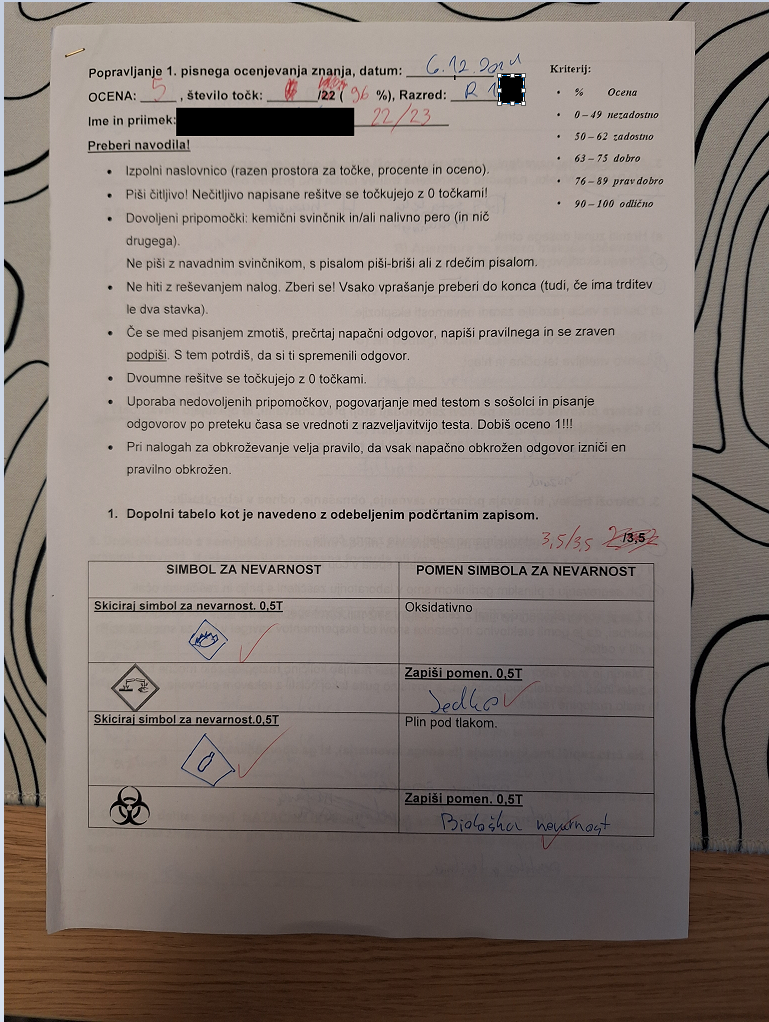 Popravljanje 1. pisnega ocenjevanja znanja, datum: 6.12.2021
OCENA: 5 , število točk: /22 ( 96 %), Razred: R 1
Ime in priimek: 22/23
Kriterij:
• % Ocena
• 0–49 nezadostno
• 50–62 zadostno
• 63–75 dobro
• 76–89 prav dobro
• 90–100 odlično
Preberi navodila!
• Izpolni naslovnico (razen prostora za točke, procente in oceno).
• Piši čitljivo! Nečitljivo napisane rešitve se točkujejo z 0 točkami!
• Dovoljeni pripomočki: kemični svinčnik in/ali nalivno pero (in nič
drugega).
Ne piši z navadnim svinčnikom, s pisalom piši-briši ali z rdečim pisalom.
• Ne hiti z reševanjem nalog. Zberi se! Vsako vprašanje preberi do konca (tudi, če ima trditev
le dva stavka).
• Če se med pisanjem zmotiš, prečrtaj napačni odgovor, napiši pravilnega in se zraven
podpiši. S tem potrdiš, da si ti spremenili odgovor.
• Dvoumne rešitve se točkujejo z 0 točkami.
• Uporaba nedovoljenih pripomočkov, pogovarjanje med testom s sošolci in pisanje
odgovorov po preteku časa se vrednoti z razveljavitvijo testa. Dobiš oceno 1!!!
• Pri nalogah za obkroževanje velja pravilo, da vsak napačno obkrožen odgovor izniči en
pravilno obkrožen.
1. Dopolni tabelo kot je navedeno z odebeljenim podčrtanim zapisom.
3,5/3,5 /3,5
SIMBOL ZA NEVARNOST
POMEN SIMBOLA ZA NEVARNOST
Skiciraj simbol za nevarnost. 0,5T
Oksidativno
Zapiši pomen. 0,5T
Jedko
Skiciraj simbol za nevarnost.0,5T
Plin pod tlakom.
Zapiši pomen. 0,5T
Biološka nevarnost